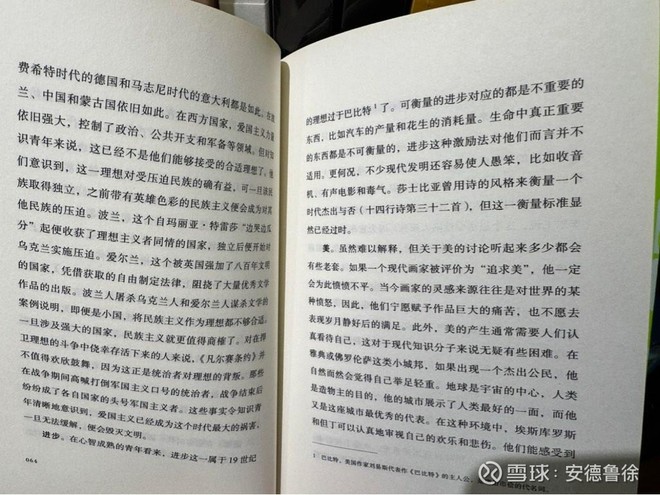 费希特时代的德国和马志尼时代的意大利都是如此,在
兰、中国和蒙古国依旧如此。在西方国家,爱国主义力量
依旧强大,控制了政治、公共开支和军备等领域。但对知
识青年来说,这已经不是他们能够接受的合适理想了。他
们意识到,这一理想对受压迫民族的确有益,可一旦该民
族取得独立,之前带有英雄色彩的民族主义便会成为对其
他民族的压迫。波兰,这个自玛丽亚·特雷莎“边哭边瓜
分”起便收获了理想主义者同情的国家,独立后便开始对
乌克兰实施压迫。爱尔兰,这个被英国强加了八百年文明
的国家,凭借获取的自由制定法律,阻挠了大量优秀文学
作品的出版。波兰人屠杀乌克兰人和爱尔兰人谋杀文学的
案例说明,即便是小国,将民族主义作为理想都不够合适。
一旦涉及强大的国家,民族主义就更值得商榷了。对在捍
卫理想的斗争中侥幸存活下来的人来说,《凡尔赛条约》并
不值得欢欣鼓舞,因为这正是统治者对理想的背叛。那些
在战争期间高喊打倒军国主义口号的统治者,战争结束后
纷纷成了各自国家的头号军国主义者。这些事实令知识青
年清晰地意识到,爱国主义已经成为这个时代最大的祸害,
一旦无法缓解,便会毁灭文明。
进步。在心智成熟的青年看来,进步这一属于 19 世纪
064
的理想过于巴比特¹了。可衡量的进步对应的都是不重要的
东西,比如汽车的产量和花生的消耗量。生命中真正重要
的东西都是不可衡量的,进步这种激励法对他们而言并不
适用。更何况,不少现代发明还容易使人愚笨,比如收音
机、有声电影和毒气。莎士比亚曾用诗的风格来衡量一个
时代杰出与否(十四行诗第三十二首),但这一衡量标准显
然已经过时。
美。虽然难以解释,但关于美的讨论听起来多少都会
有些老套。如果一个现代画家被评价为“追求美”,他一定
会为此愤愤不平。当今画家的灵感来源往往是对世界的某
种愤怒,因此,他们宁愿赋予作品巨大的痛苦,也不愿去
表现岁月静好后的满足。此外,美的产生通常需要人们认
真看待自己,这对于现代知识分子来说无疑有些困难。在
雅典或佛罗伦萨这类小城邦,如果出现一个杰出公民,他
自然而然会觉得自己举足轻重。地球是宇宙的中心,人类
是造物主的目的,他的城市展示了人类最好的一面,而他
又是这座城市最优秀的代表。在这种环境中,埃斯库罗斯
和但丁可以认真地审视自己的欢乐和悲伤。他们能感受到
1 巴比特,美国作家刘易斯代表作《巴比特》的主人公,
的代名词。
雪球:安德鲁徐